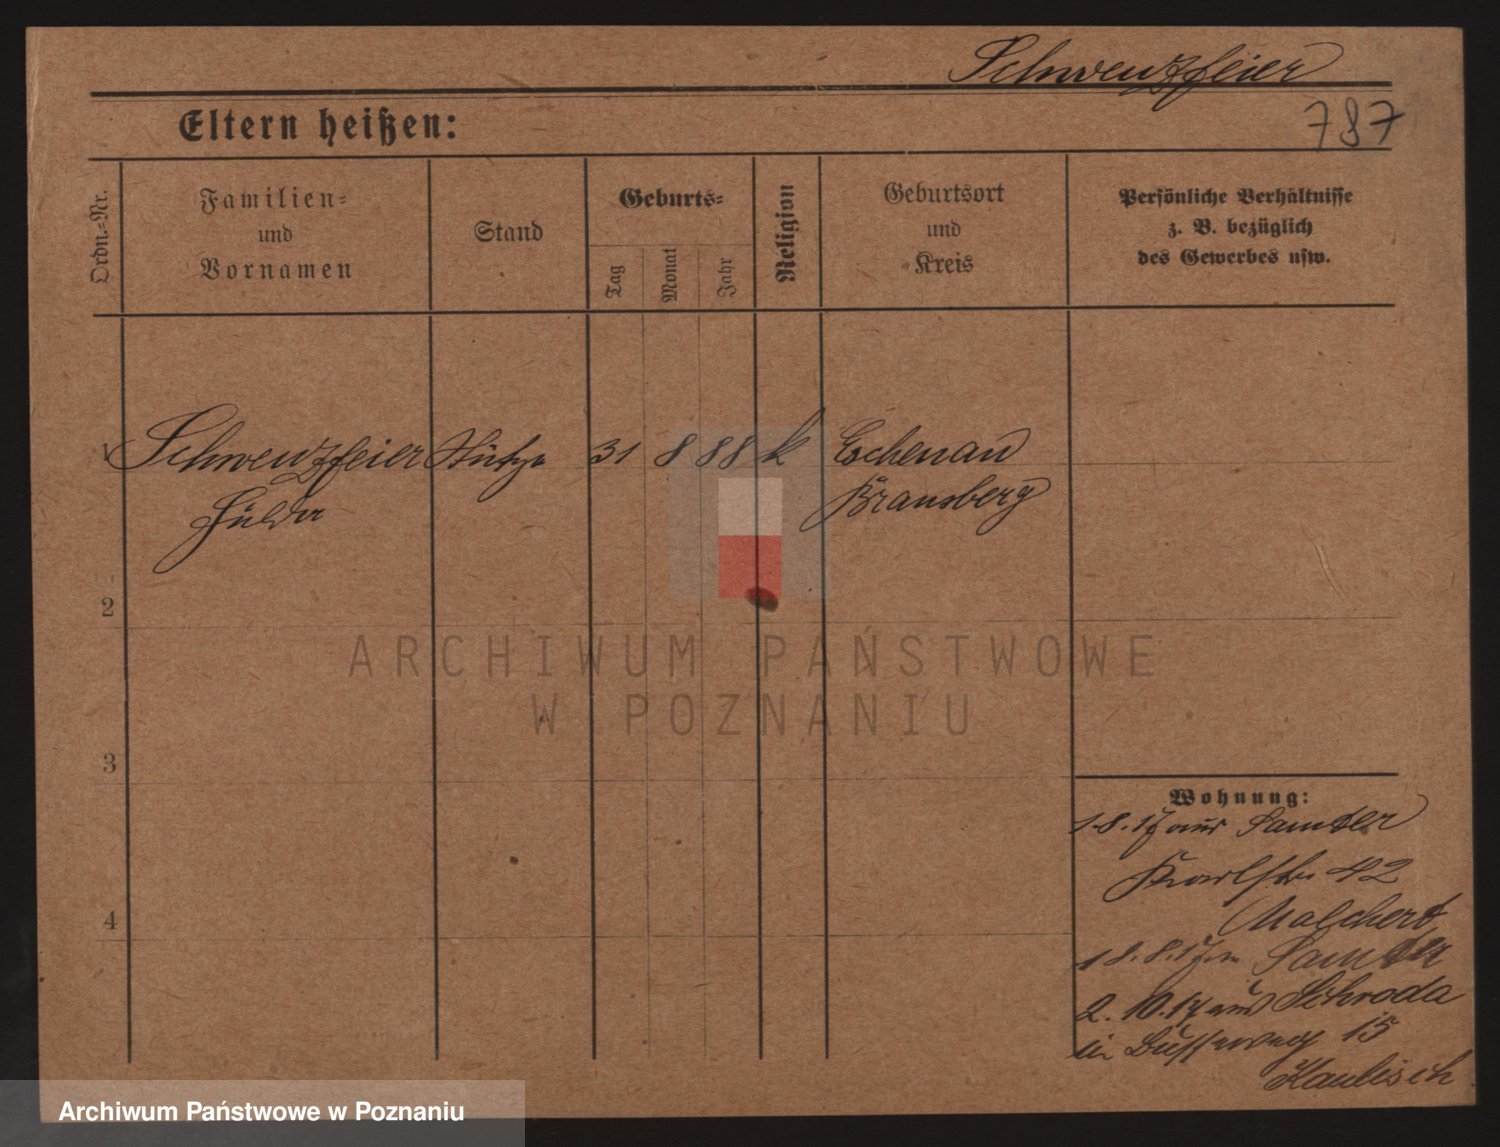 Schwenzfeier
787
Eltern heißen:
Ordn.-Nr.
Familien-
und
Vornamen
Stand
Geburts-
Tag
Monat
Jahr
Religion
Geburtsort
und
Kreis
Persönliche Verhältnisse
z. B. bezüglich
des Gewerbes usw.
1 Schwenzfeier Stütze 31 8 88 k Eschenau
Hulda Braunsberg
2
ARCHIWUM PAŃSTWOWE
W POZNANIU
3
Wohnung:
1.8.17 aus Samter
Karlstr. 42
4
18.8.17 n Samter
2.10.17 aus Schroda
in 15
Kaulisch
Archiwum Państwowe w Poznaniu